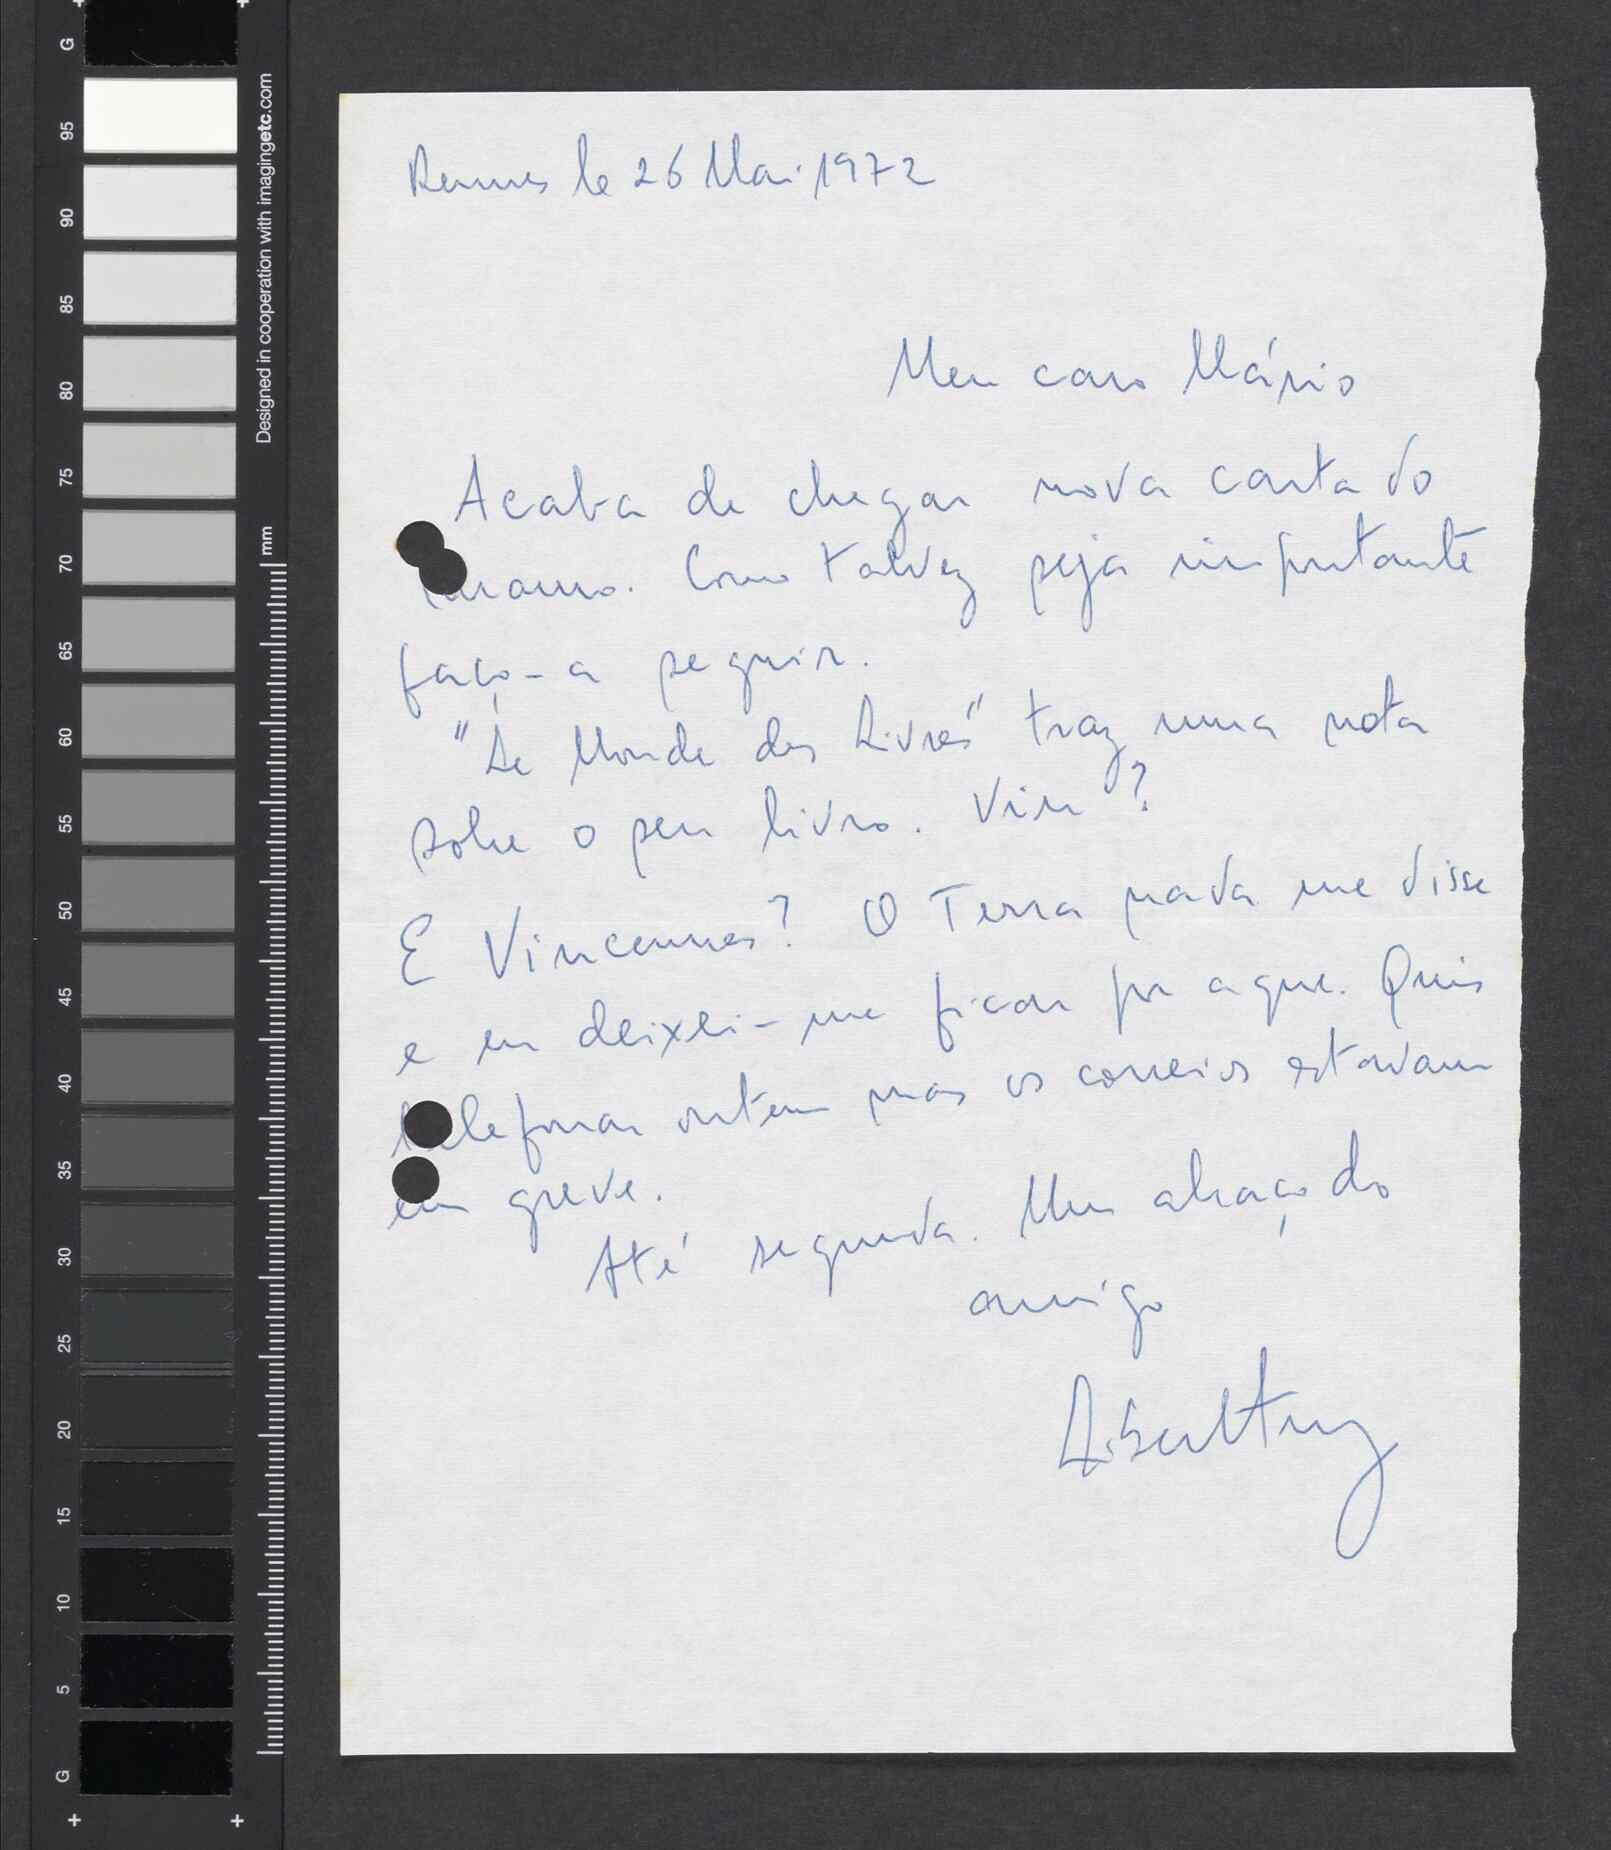 G
95
90
85
80
75
70
65
60
55
50
45
40
35
30
25
20
15
10
5
G
Designed in cooperation with imagingetc.com
mm
Rennes le 26 Mai 1972
Meu caro Mário
Acaba de chegar nova carta do
. Como talvez seja importante
faço-a seguir.
"Le Monde des Livres" traz uma nota
sobre o seu livro. Viu?
E Vincennes? O Terra nada me disse
e eu deixei-me ficar por aqui. Quis
telefonar ontem mas os correios estavam
em greve.
Até segunda. Um abraço do
amigo